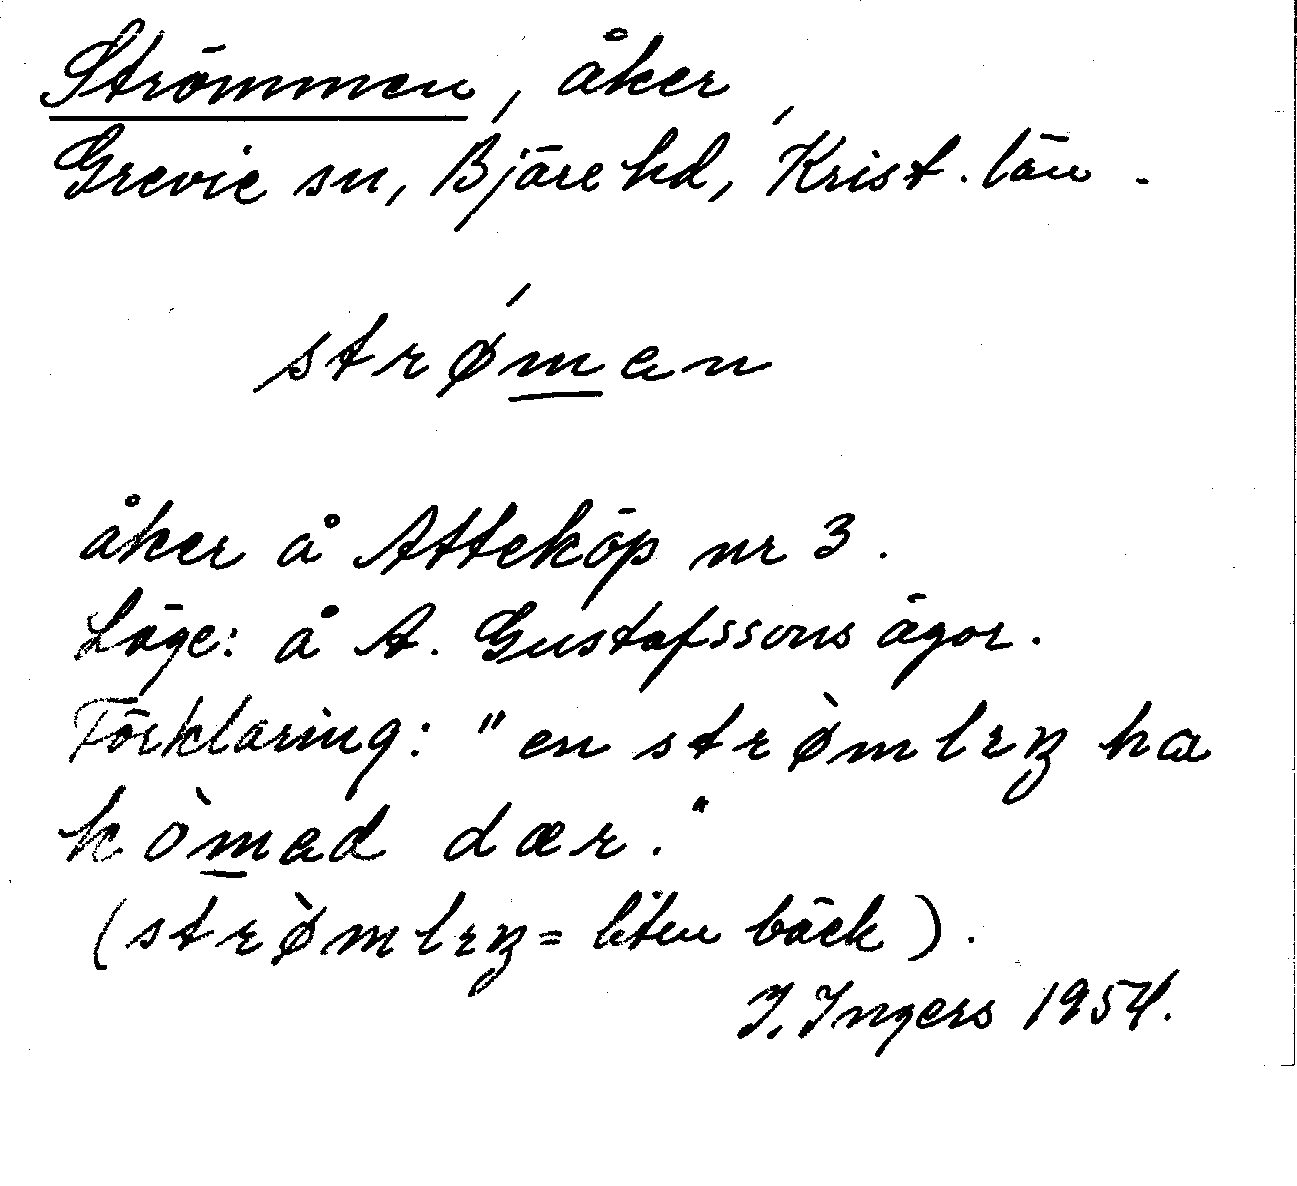 Strömmen, åker,
Grevie sn, Bjäre hd, Krist. län.
strǿman
åker å Atteköp nr 3.
Läge: å A. Gustafssons ägor.
Förklaring: "en strø̀mlrŋ ha
kòmad dær."
(strø̀mlrŋ = liten bäck).
I. Ingers 1954.